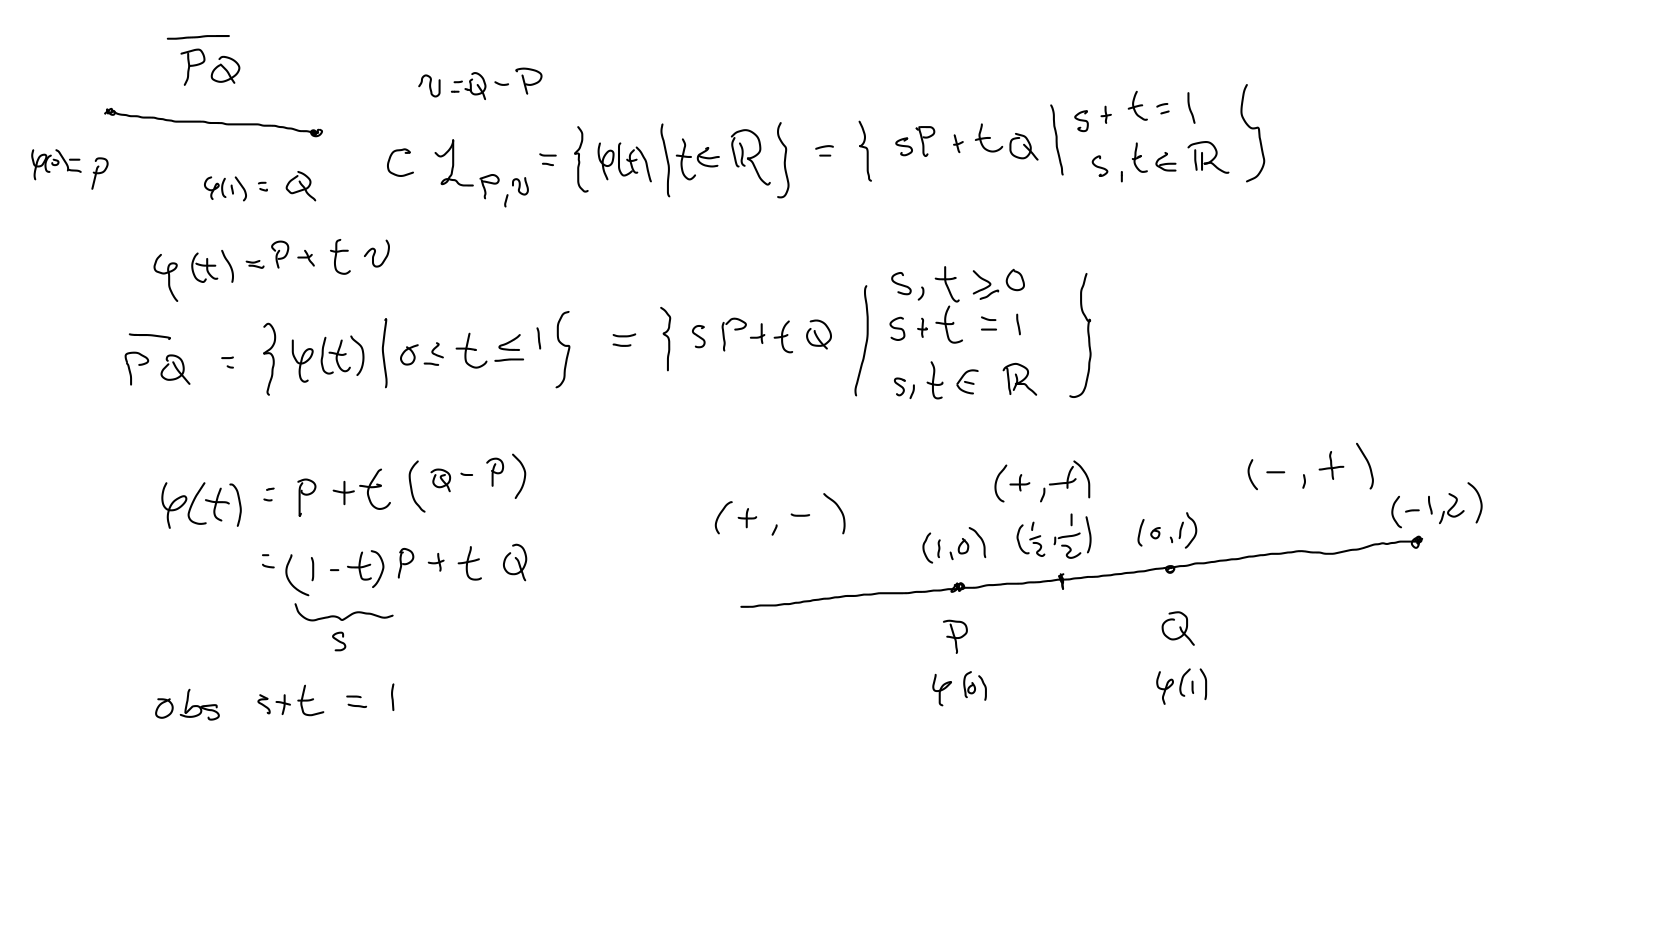 $\overline{PQ}$
$v = Q - P$
$\subset \mathcal{L}_{P,v} = \{ \varphi(t) \mid t \in \mathbb{R} \} = \{ sP + tQ \mid s + t = 1 \quad s, t \in \mathbb{R} \}$
$\varphi(0) = P$
$\varphi(1) = Q$
$\varphi(t) = P + t v$
$\overline{PQ} = \{ \varphi(t) \mid 0 \leq t \leq 1 \} = \{ sP + tQ \mid s, t \geq 0 \quad s + t = 1 \quad s, t \in \mathbb{R} \}$
$\varphi(t) = P + t(Q - P)$
$= (1 - t)P + tQ$
s
obs $s + t = 1$
(+, -) (+, +) (-, +)
(1,0) $(\frac{1}{2}, \frac{1}{2})$ (0,1) (-1,2)
P Q
$\varphi(0)$ $\varphi(1)$